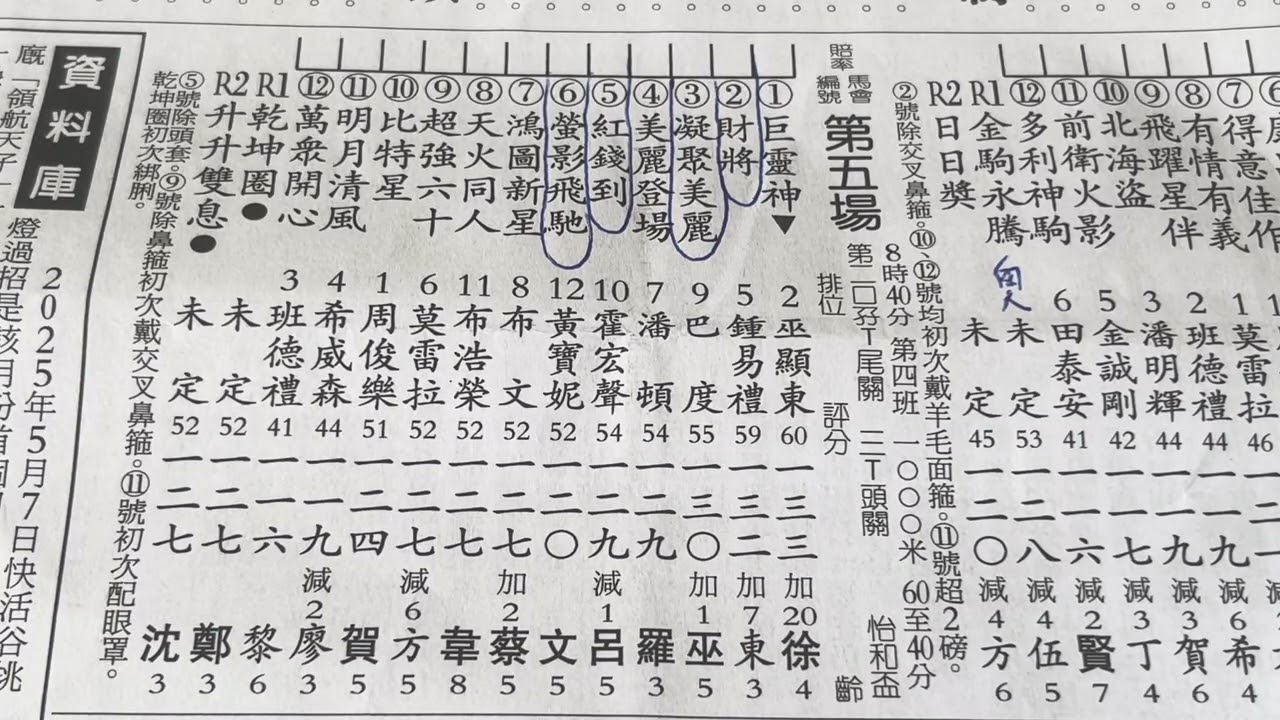 ⑦得意佳作
⑧有情有義 1 莫雷拉 46
⑨飛躍星伴 2 班德禮 44 一一九 減6 希 4
⑩北海盜 3 潘明輝 44 一一九 減3 賀 6
⑪前衛火影 5 金誠剛 42 一一七 減3 丁 4
⑫多利神駒 6 田泰安 41 一一六 減2 賢 7
R1金駒永騰 未定 53 一二八 減4 伍 5
R2日日獎 未定 45 一二〇 減4 方 6
②號除交叉鼻箍。⑩、⑫號均初次戴羊毛面箍。⑪號超2磅。
8時40分 第四班 一〇〇〇米 60至40分
第二〇孖T尾關 三T頭關 怡和盃
第五場
賠率 馬會編號 排位 評分 齡
①巨靈神▼ 2 巫顯東 60 一三三 加20 徐 4
②財將 5 鍾易禮 59 一三二 加7 東 3
③凝聚美麗 9 巴度 55 一三〇 加1 巫 5
④美麗登場 7 潘頓 54 一二九 羅 3
⑤紅錢到 10 霍宏聲 54 一二九 減1 呂 5
⑥螢影飛馳 12 黃寶妮 52 一二〇 文 5
⑦鴻圖新星 8 布文 52 一二七 加2 蔡 5
⑧天火同人 11 布浩榮 52 一二七 韋 8
⑨超強六十 6 莫雷拉 52 一二七 減6 方 5
⑩比特星 1 周俊樂 51 一二四 賀 5
⑪明月清風 4 希威森 44 一一九 減2 廖 3
⑫萬眾開心 3 班德禮 41 一一六 黎 6
R1乾坤圈● 未定 52 一二七 鄭 3
R2升升雙息● 未定 52 一二七 沈 3
⑤號除頭套。⑨號除鼻箍初次戴交叉鼻箍。⑪號初次配眼罩。
乾坤圈初次綁脷。
資料庫
2025年5月7日快活谷跳
廐「領航天子
燈過招是該月份首個